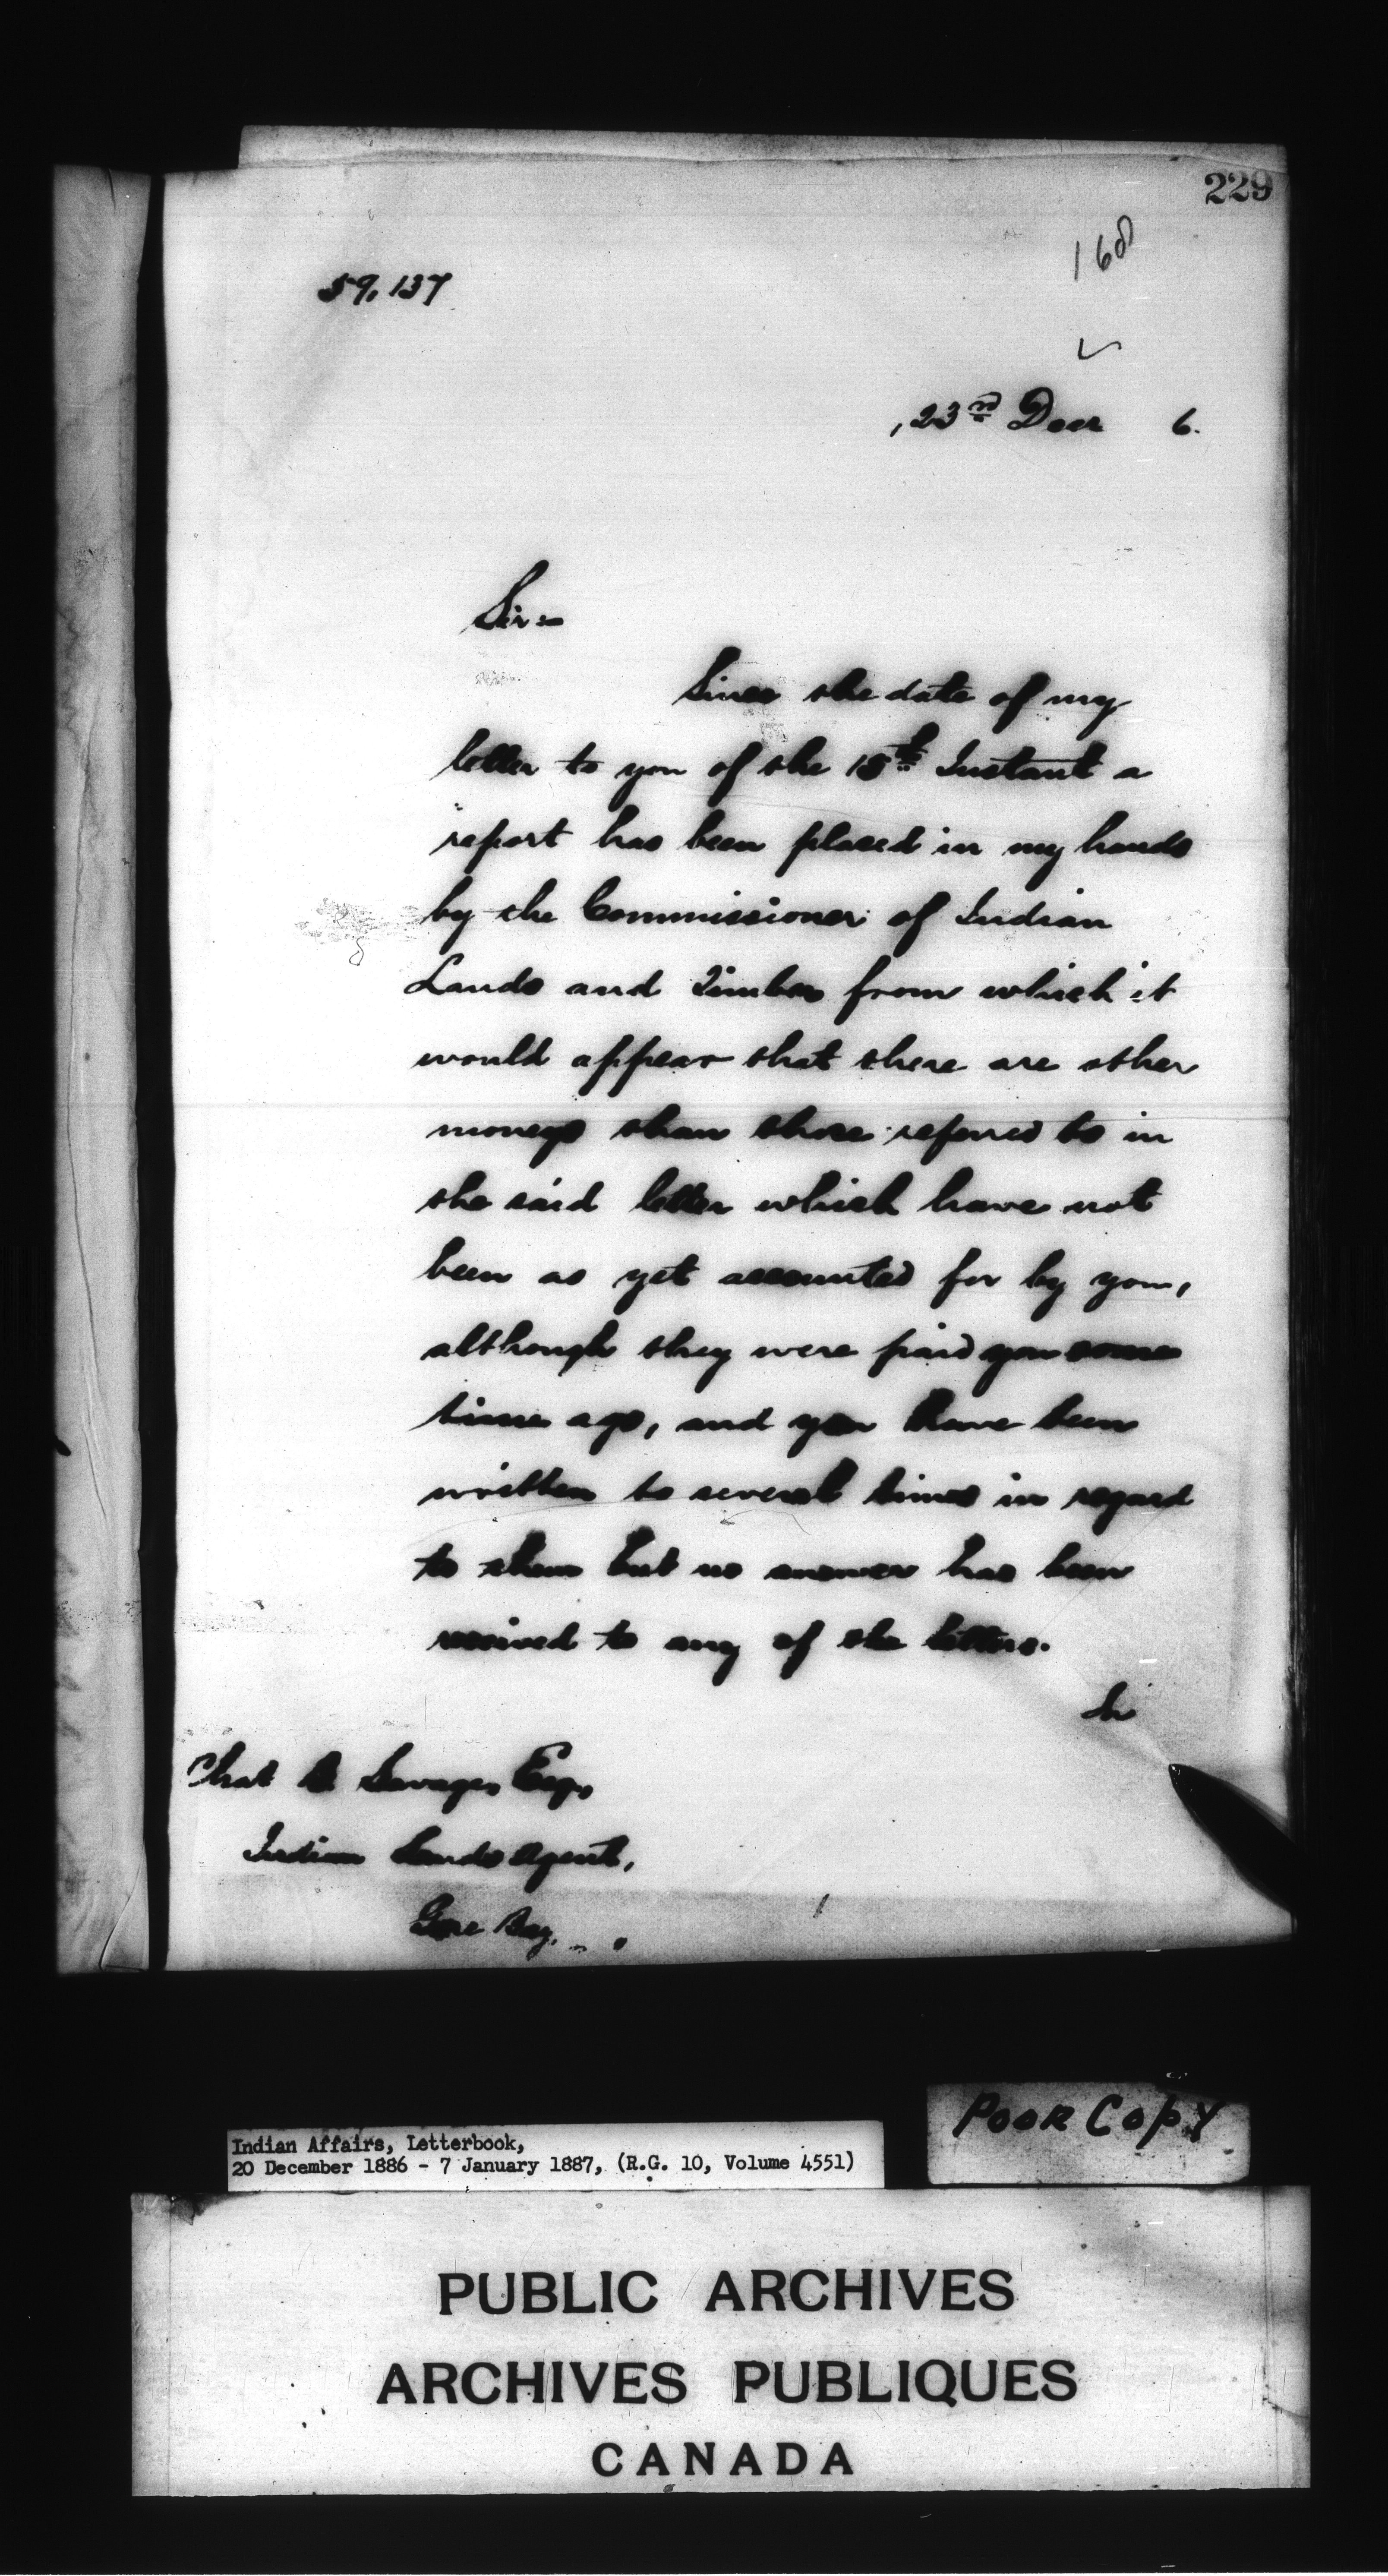 229
168
59,137
23rd Decr 6.
Sir:
Since the date of my
letter to you of the 15th Instant a
report has been placed in my hands
by the Commissioner of Indian
Lands and Timber from which it
would appear that there are other
moneys than those referred to in
the said letter which have not
been as yet accounted for by you,
although they were paid you some
time ago, and you have been
written to several times in regard
to them but no answer has been
received to any of the letters.
Savage, Esq,
Indian Lands Agent,
Gore Bay,
POOR COPY
Indian Affairs, Letterbook,
20 December 1886 - 7 January 1887, (R.G. 10, Volume 4551)
PUBLIC ARCHIVES
ARCHIVES PUBLIQUES
CANADA